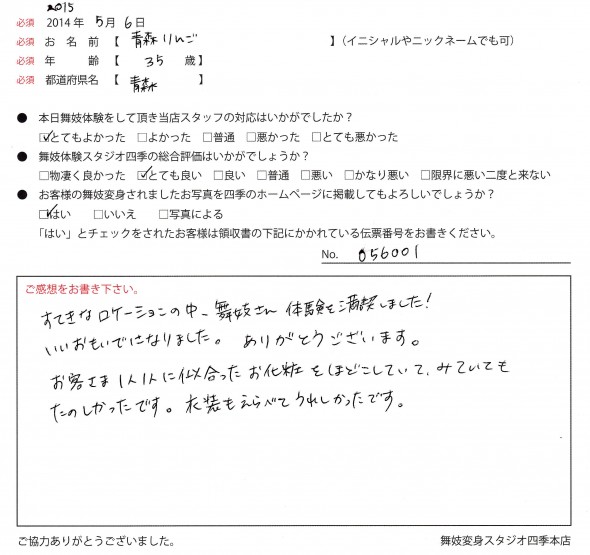 2015
必須 2014年 5月 6日
必須 お名前【 青森りんご 】(イニシャルやニックネームでも可)
必須 年齢【 35 歳】
必須 都道府県名【 青森 】
● 本日舞妓体験をして頂き当店スタッフの対応はいかがでしたか?
☑とてもよかった □よかった □普通 □悪かった □とても悪かった
● 舞妓体験スタジオ四季の総合評価はいかがでしょうか?
□物凄く良かった ☑とても良い □良い □普通 □悪い □かなり悪い □限界に悪い二度と来ない
● お客様の舞妓変身されましたお写真を四季のホームページに掲載してもよろしいでしょうか?
☑はい □いいえ □写真による
「はい」とチェックをされたお客様は領収書の下記にかかれている伝票番号をお書きください。
No. 056001
ご感想をお書き下さい。
すてきなロケーションの中、舞妓さん体験を満喫しました!
いいおもいでになりました。 ありがとうございます。
お客さま1人1人に似合ったお化粧をほどこしていて、みていても
たのしかったです。衣装もえらべてうれしかったです。
ご協力ありがとうございました。
舞妓変身スタジオ四季本店